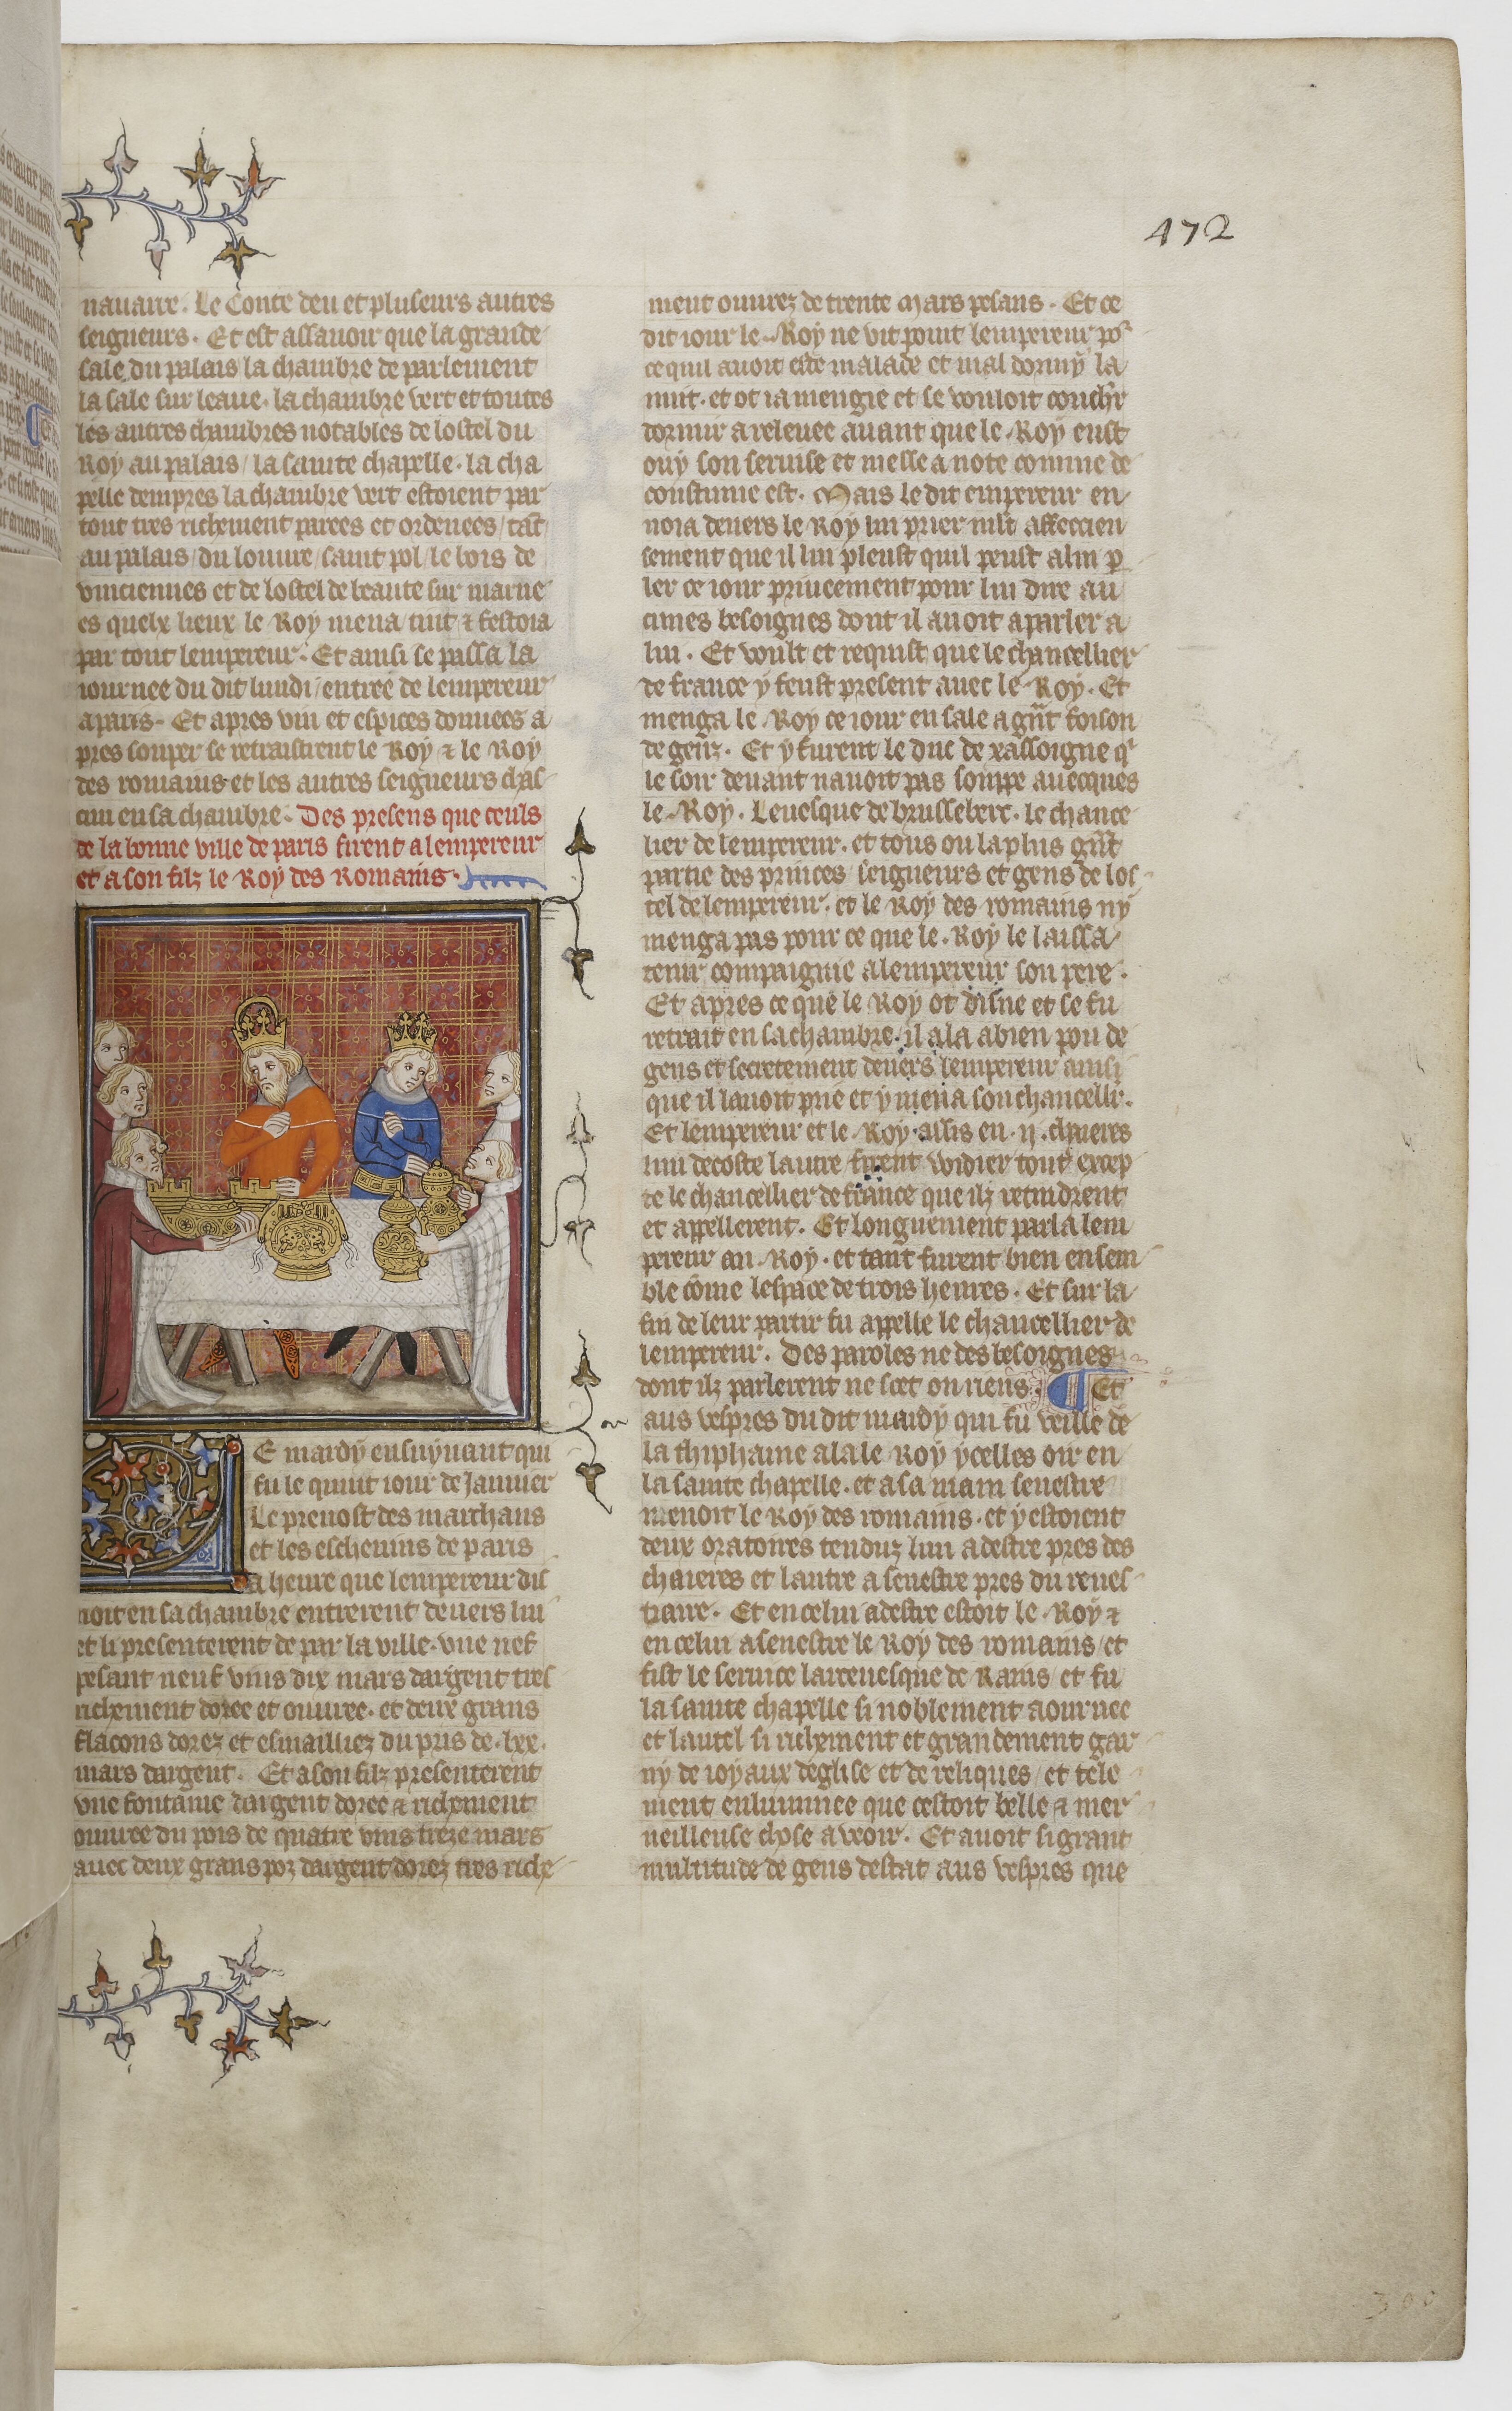 472
nauarre. Le Conte deu et pluseurs autres
seigneurs. Et est assauoir que la grande
sale du palais la chambre de parlement
la sale sur leaue. la chambre vert et toutes
les autres chambres notables de lostel du
Roy au palais / la sainte chapelle. la cha
pelle dempres la chambre vert estoient par
tout tres richement parees et ordenees / tāt
au palais / du louure / saint pol / le bois de
vinciennes et de lostel de beaute sur marne
es quelx lieux le Roy mena tint ⁊ festoia
par tout lempereur. Et ainsi se passa la
iournee du dit lundi / entree de lempereur
a paris. Et apres vin et espices donnees a
pres souper se retraistrent le Roy ⁊ le Roy
des romains et les autres seigneurs chas
cun en sa chambre. Des presens que ceuls
de la bonne ville de paris firent a lempereur
et a son filz le Roy des Romains.
LE mardy ensuyuant qui
fu le quint iour de Januier
Le preuost des marchans
et les escheuins de paris
a heure que lempereur dis
noit en sa chambre entrerent deuers lui
et li presenterent de par la ville. vne nef
pesant neuf vins dix mars dargent tres
richement doree et ouuree. et deux grans
flacons dorez et esmailliez du pris de .lxx.
mars dargent. Et a son filz presenterent
vne fontaine dargent doree ⁊ richement
ouuree du pois de quatre vins treze mars
auec deux grans poz dargent dorez tres riche
ment ouurez de trente Mars pesans. Et ce
dit iour le Roy ne vit point lempereur po͛
ce quil auoit este malade et mal dormy la
nuit. et ot ia mengie et se vouloit couch̄r
dormir a releuee auant que le Roy eust
ouy son seruise et messe a note comme de
coustume est. Mais le dit empereur en
uoia deuers le Roy lui prier ml̄t affeccieu
sement que il lui pleust quil peust a lui p̲
ler ce iour priueement pour lui dire au
cunes besoignes dont il auoit a parler a
lui. Et voult et requist que le chancellier
de france y feust present auec le Roy. Et
menga le Roy ce iour en sale a gn̄t foison
de genz. Et y furent le duc de xassoigne qͥ
le soir deuant nauoit pas souppe auecques
le Roy. Leuesque de brusseberc. le chance
lier de lempereur. et tous ou la plus gn̄t
partie des princes / seigneurs et gens de los
tel de lempereur. et le Roy des romains ny
menga pas pour ce que le Roy le laissa
tenir compaignie a lempereur son pere.
Et apres ce que le Roy ot disne et se fu
retrait en sa chambre. il ala a bien pou de
gens et secretement deuers lempereur ainsi
que il lauoit prie et y mena son chancellr̄.
Et lempereur et le Roy assis en .ij. chaieres
lun decoste lautre firent widier tout excep
te le chancellier de france que ilz retindrent
et appellerent. Et longuement parla lem
pereur au Roy. et tant furent bien ensem
ble cōme lespace de trois heures. Et sur la
fin de leur partir fu appelle le chancellier de
lempereur. Des paroles ne des besoignes
dont ilz parlerent ne scet on riens. ¶ Et
aus vespres du dit mardy qui fu veille de
la thiphaine ala le Roy ycelles oir en
la sainte chapelle. et a sa main senestre
menoit le Roy des romains. et y estoient
deux oratoires tenduz lun a destre pres des
chaieres et lautre a senestre pres du reues
tiaire. Et en celui a destre estoit le Roy ⁊
en celui a senestre le Roy des romains / et
fist le seruice larceuesque de Rains / et fu
la sainte chapelle si noblement aournee
et lautel si richement et grandement gar
ny de ioyaux deglise et de reliques / et tele
ment enluminee que cestoit belle ⁊ mer
ueilleuse chose a veoir. Et auoit si grant
multitude de gens destat aus vespres que
300